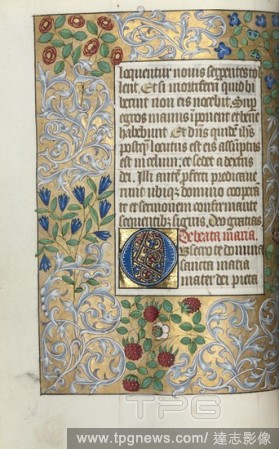 loquentur novis serpentes tol
lent Et si mortiferū quid bi
berint non eis nocebit Sup
egros manus īponent et bene
habebunt Et dn̄s quidē ih̄s
postq̄ locutus est eis assūptus
est in celum et sedet a dextris
dei Illi autē pfecti predicaue
runt ubiq̄ domino coopera
te et sermonem confirmante
sequentibus signis Deo gratias
De beata maria
Obsecro te domina
sancta maria
mater dei pieta
TPG
www.tpgnews.com/ 達志影像